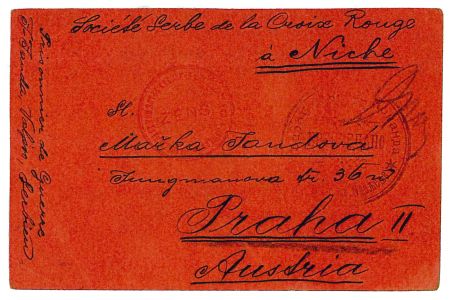 Société Serbe de la Croix Rouge
à Niche
Sl.
Mařka Jandová
Jungmanova tř. 36 n.
Praha II
Austria
Prisonnier de Guerre